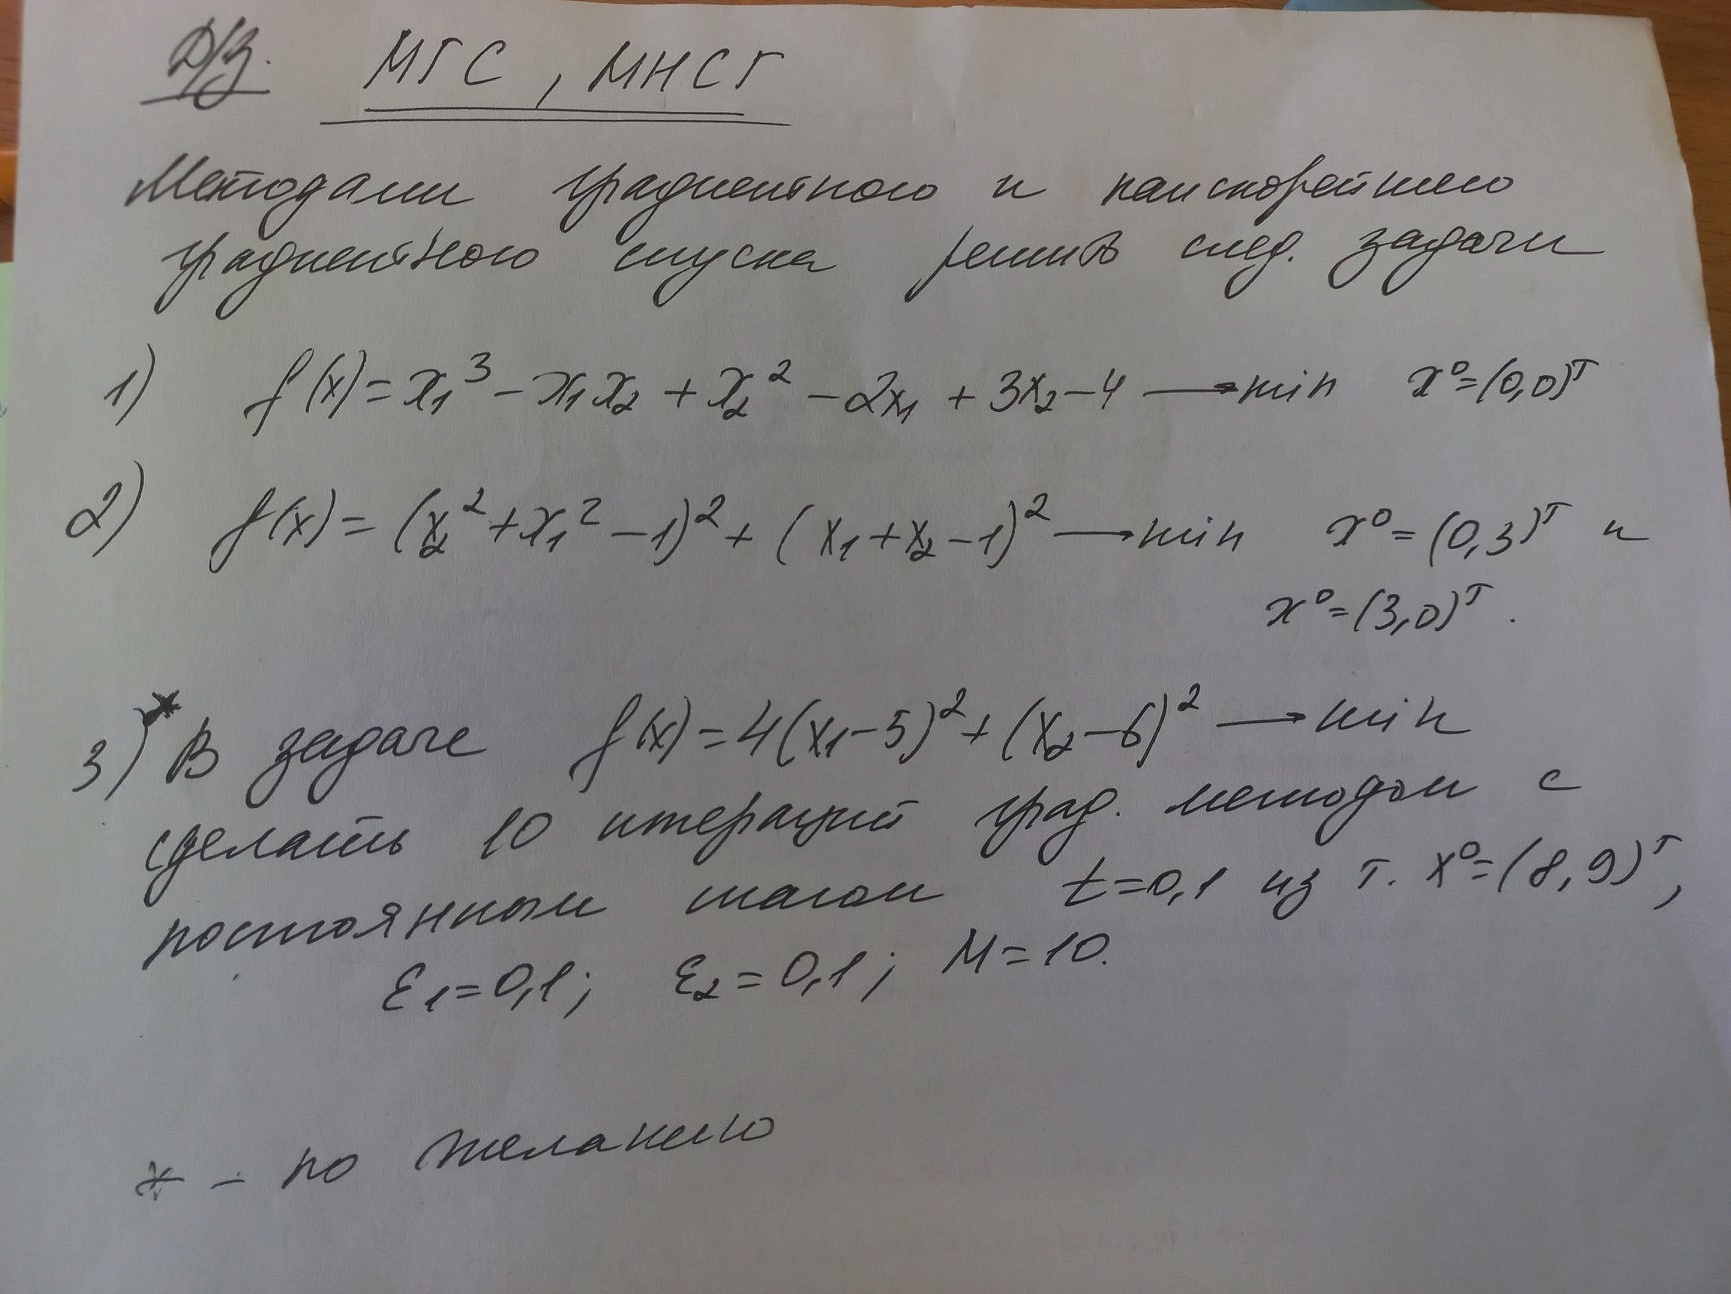 Д/З. МГС, МНСГ
Методами градиентного и наискорейшего
градиентного спуска решить след. задачи
1) f(x) = x₁³ - x₁x₂ + x₂² - 2x₁ + 3x₂ - 4 → min x⁰=(0,0)ᵀ
2) f(x) = (x₂² + x₁² - 1)² + (x₁ + x₂ - 1)² → min x⁰=(0,3)ᵀ и
x⁰=(3,0)ᵀ.
3)* В задаче f(x) = 4(x₁-5)² + (x₂-6)² → min
сделать 10 итераций град. методом с
постоянным шагом t=0,1 из т. x⁰=(8,9)ᵀ,
ε₁=0,1; ε₂=0,1; M=10.
* - по желанию